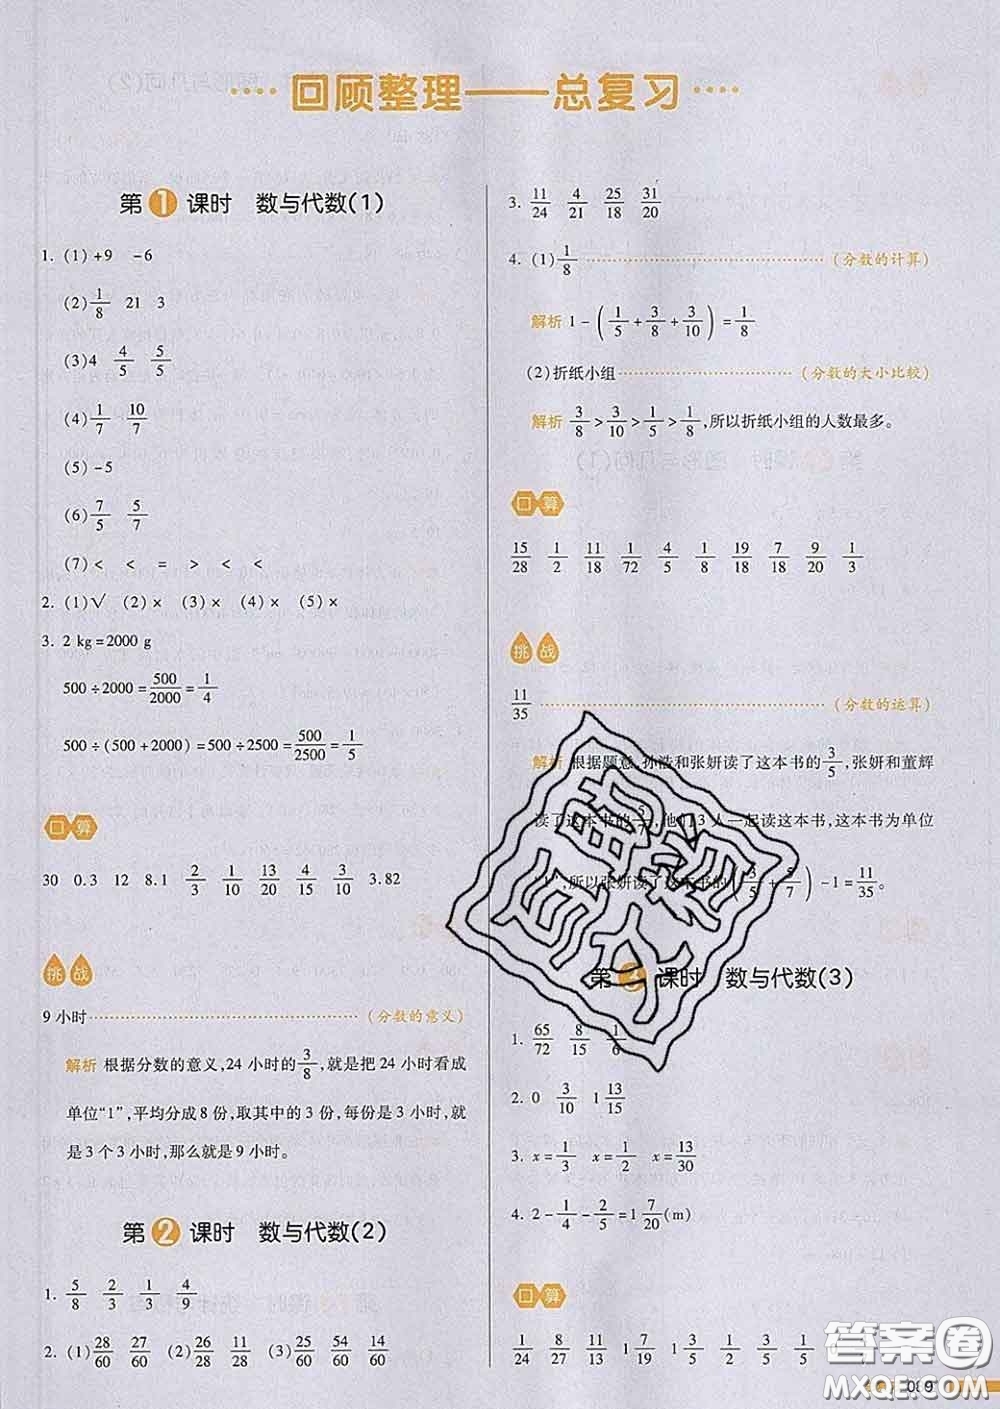 回顾整理——总复习
第1课时 数与代数(1)
1. (1)+9 -6
(2)1/8 21 3
(3)4 4/5 5/5
(4)1/7 10/7
(5)-5
(6)7/5 5/7
(7)< < = > < <
2. (1)√ (2)× (3)× (4)× (5)×
3. 2 kg=2000 g
500÷2000=500/2000=1/4
500÷(500+2000)=500÷2500=500/2500=1/5
口算
30 0.3 12 8.1 2/3 1/10 13/20 4/15 3/10 3.82
挑战
9小时(分数的意义)
解析 根据分数的意义,24小时的3/8,就是把24小时看成
单位“1”,平均分成8份,取其中的3份,每份是3小时,就
是3个3小时,那么就是9小时。
第2课时 数与代数(2)
1. 5/8 2/3 1/3 4/9
2. (1)28/60 27/60 (2)26/28 11/28 (3)25/60 54/60 14/60
3. 11/24 4/21 25/18 31/20
4. (1)1/8(分数的计算)
解析 1-(1/5+3/8+3/10)=1/8
(2)折纸小组(分数的大小比较)
解析 3/8>3/10>1/5>1/8,所以折纸小组的人数最多。
口算
15/28 1/2 11/18 1/72 4/5 1/18 19/18 7/18 9/20 1/3
挑战
11/35(分数的运算)
解析 根据题意,孙浩和张妍读了这本书的3/5,张妍和董辉
读了这本书的5/7,他们3人一起读这本书,这本书为单位
“1”,所以张妍读了这本书的(3/5+5/7)-1=11/35。
第3课时 数与代数(3)
1. 65/72 8/15 1/6
2. 0 3/10 1 13/15
3. x=1/3 x=1/2 x=13/30
4. 2-1/4-2/5=1 7/20(m)
口算
1/24 1/27
答案圈
MXQE.COM
089